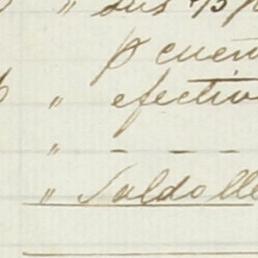 " sus
p cuen
" efectiv
" - - -
" Saldo lle